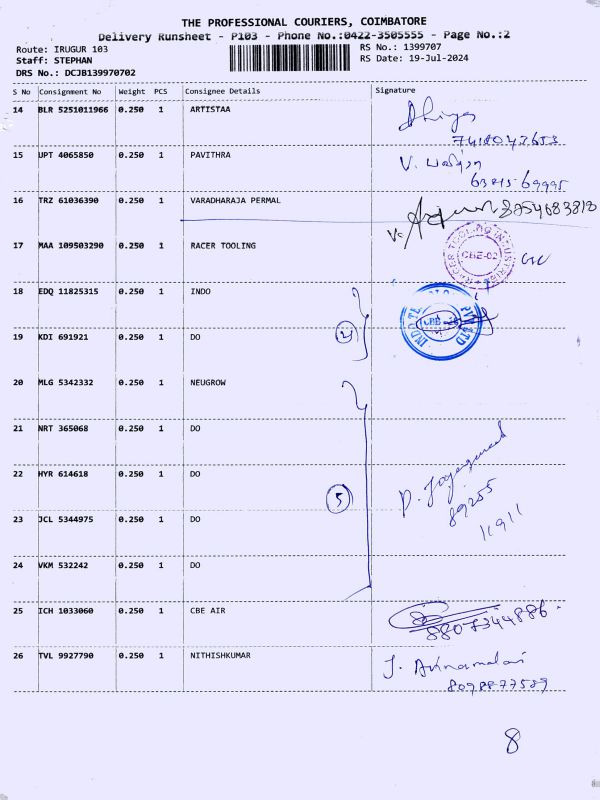 THE PROFESSIONAL COURIERS, COIMBATORE
Delivery Runsheet - P103 - Phone No.:0422-3505555 - Page No.:2
Route: IRUGUR 103
RS No.: 1399707
Staff: STEPHAN
RS Date: 19-Jul-2024
DRS No.: DCJB139970702
S No Consignment No Weight PCS Consignee Details Signature
14 BLR 5251011966 0.250 1 ARTISTAA
15 UPT 4065850 0.250 1 PAVITHRA
16 TRZ 61036390 0.250 1 VARADHARAJA PERMAL
17 MAA 109503290 0.250 1 RACER TOOLING
CBE-02
18 EDQ 11825315 0.250 1 INDO
19 KDI 691921 0.250 1 DO
20 MLG 5342332 0.250 1 NEUGROW
21 NRT 365068 0.250 1 DO
22 HYR 614618 0.250 1 DO
89255
5
11911
23 JCL 5344975 0.250 1 DO
24 VKM 532242 0.250 1 DO
25 ICH 1033060 0.250 1 CBE AIR
8807344886
26 TVL 9927790 0.250 1 NITHISHKUMAR
8